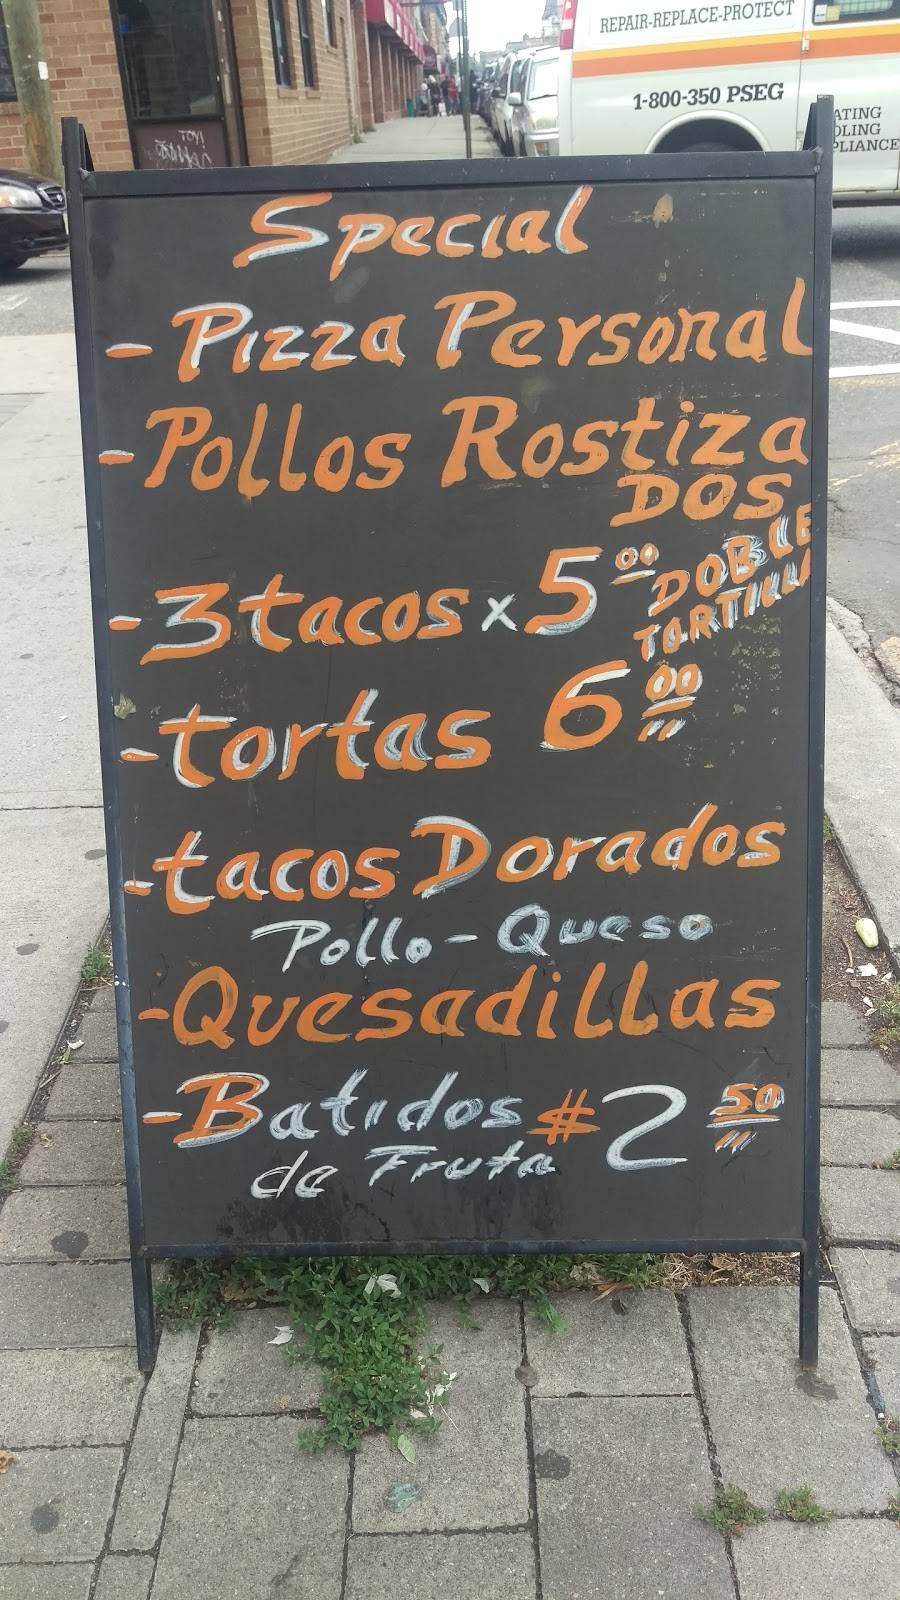 REPAIR-REPLACE-PROTECT
1-800-350 PSEG
Special
- Pizza Personal
- Pollos Rostiza
DOS
- 3 tacos x 5 00 DOBLE
TORTILLA
- tortas 6 00
- tacos Dorados
Pollo - Queso
- Quesadillas
- Batidos # 2 50
de Fruta